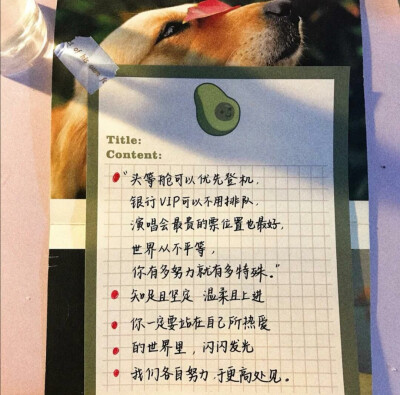 Title:
Content:
“头等舱可以优先登机，
银行VIP可以不用排队，
演唱会最贵的票位置也最好，
世界从不平等，
你有多努力就有多特殊。”
知足且坚定 温柔且上进
你一定要站在自己所热爱
的世界里，闪闪发光
我们各自努力，于更高处见。